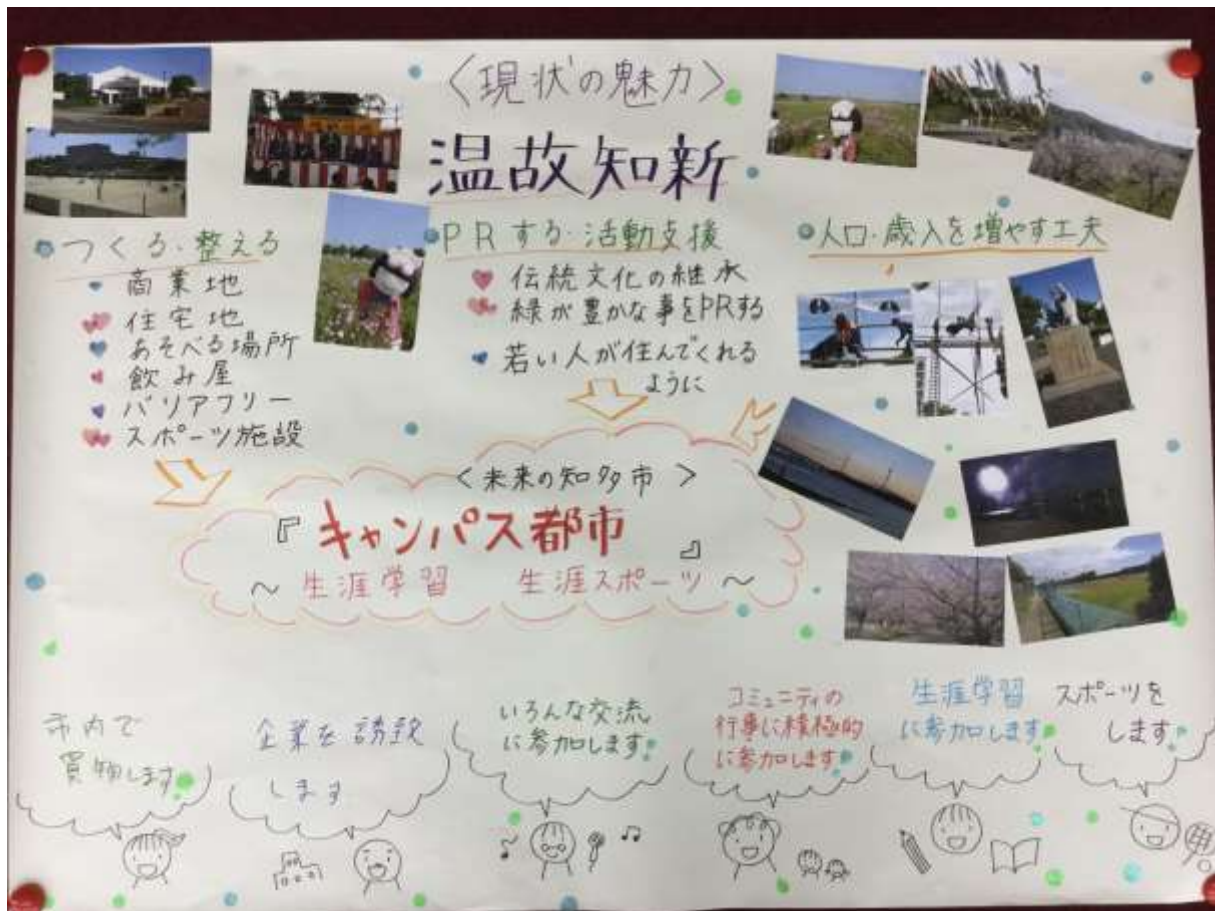 〈現状の魅力〉
温故知新
つくる・整える
商業地
住宅地
あそべる場所
飲み屋
バリアフリー
スポーツ施設
PRする・活動支援
伝統文化の継承
緑が豊かな事をPRする
若い人が住んでくれる
ように
人口・歳入を増やす工夫
〈未来の知多市〉
『キャンパス都市』
～生涯学習 生涯スポーツ～
市内で
買物します
企業を誘致
します
いろんな交流
に参加します
コミュニティの
行事に積極的
に参加します
生涯学習
に参加します
スポーツを
します